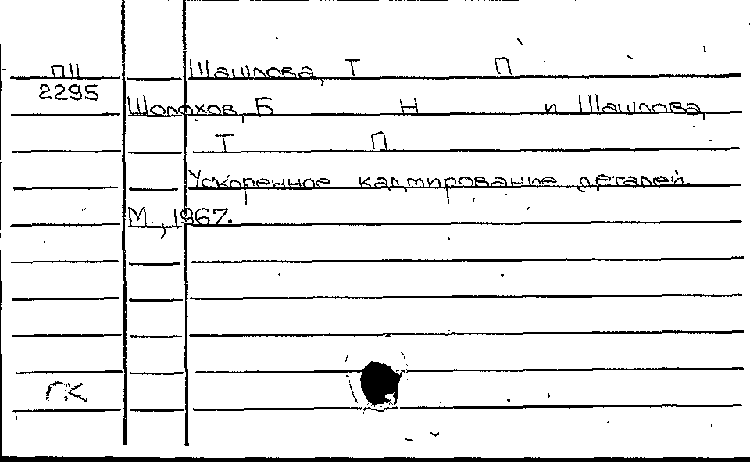 ПII Шашлова, Т П
2295
Шолохов, Б Н и Шашлова,
Т П
Ускоренное кадмирование деталей.
М., 1967.
ГК